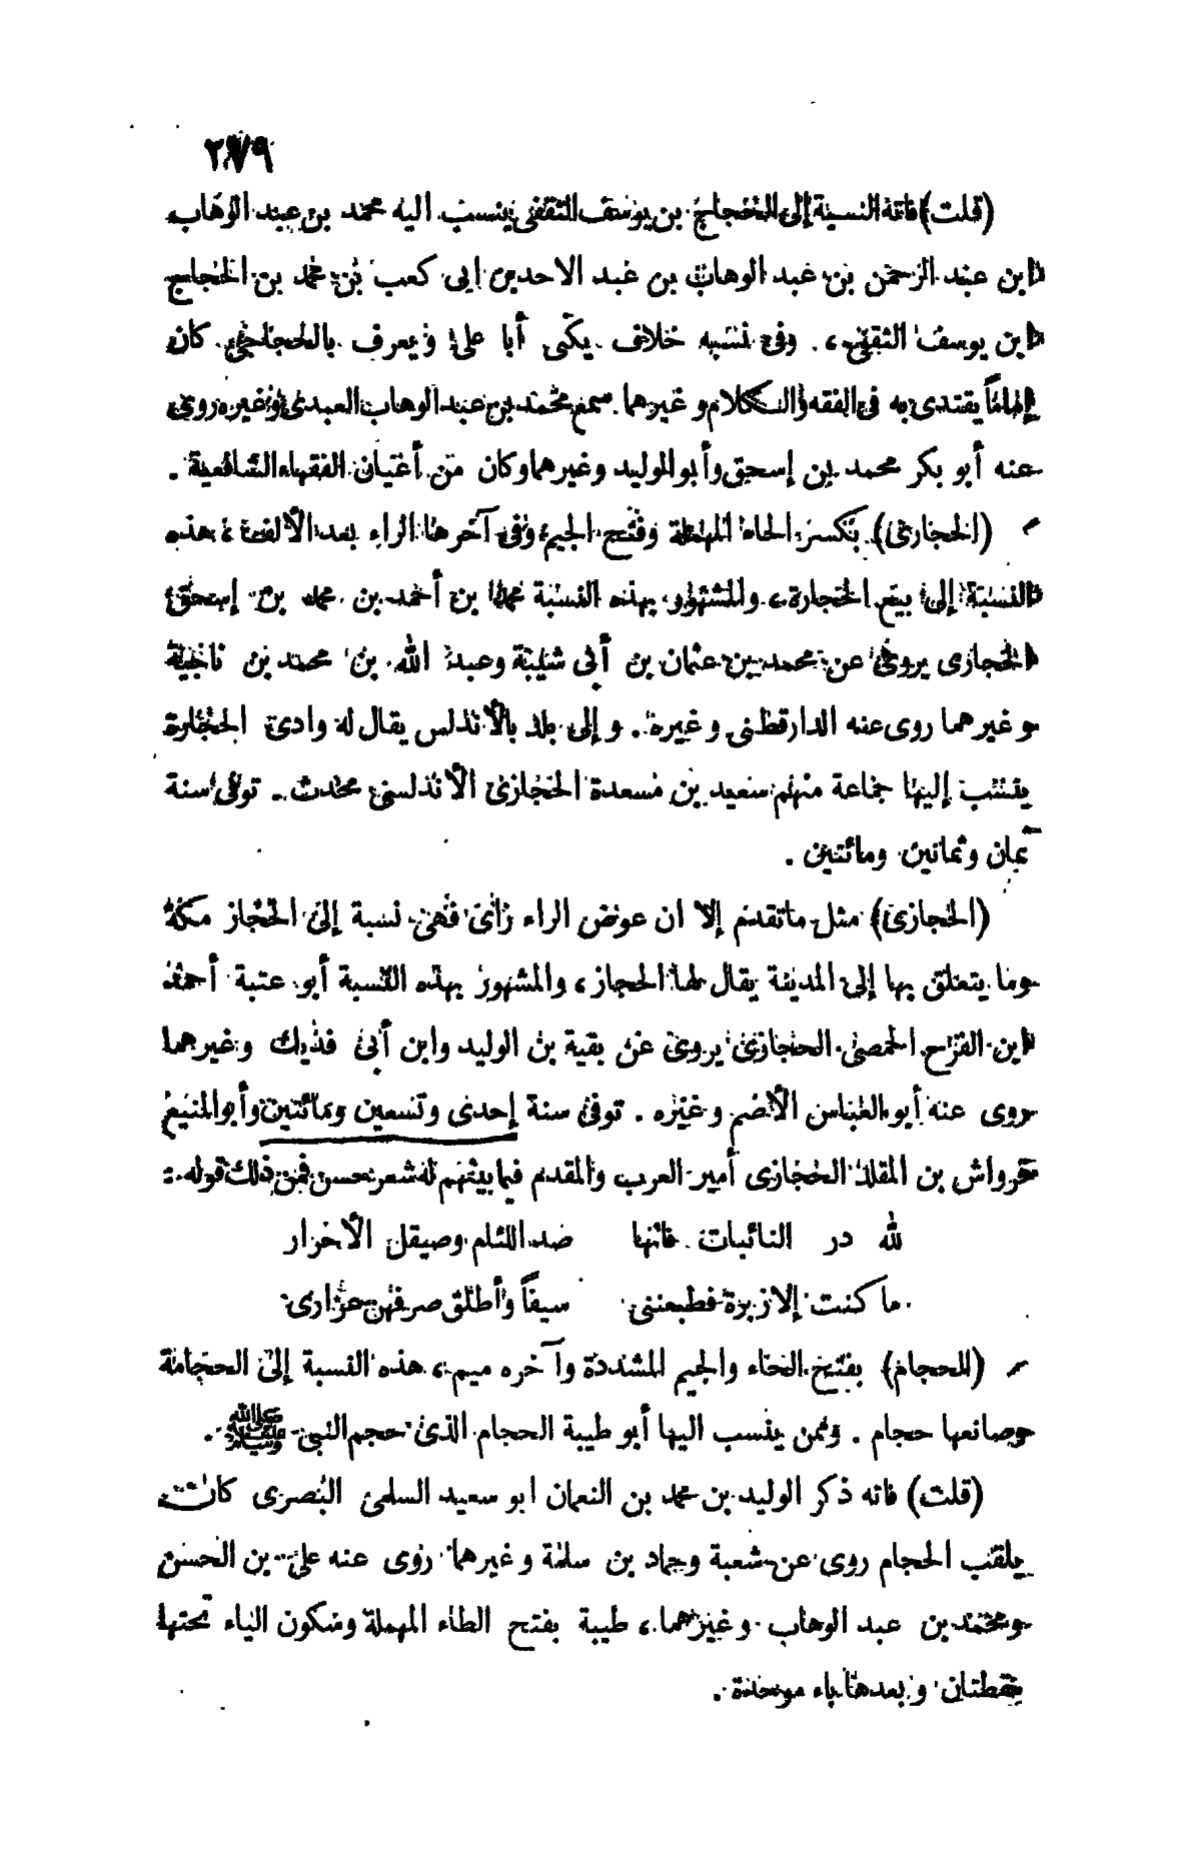 ٢٧٩
(قلت) فاته النسبة إلى الحجاج بن يوسف الثقفي ينسب اليه محمد بن عبد الوهاب
ابن عبد الرحمن بن عبد الوهاب بن عبد الاحد بن ابى كعب بن محمد بن الحجاج
ابن يوسف الثقفي، وفى نسبه خلاف يكنى أبا على ويعرف بالحجاجى كان
إماماً يقتدى به فى الفقه والكلام وغيرهما سمع محمد بن عبد الوهاب العبدى وغيره روى
عنه أبو بكر محمد بن إسحق وأبو الوليد وغيرهما وكان من أعيان الفقهاء الشافعية .
(الحجارى) بكسر الحاء المهملة وفتح الجيم وفى آخرها الراء بعد الألف، هذه
النسبة إلى بيع الحجارة، والمشهور بهذه النسبة محمد بن أحمد بن محمد بن إسحق
الحجارى يروى عن محمد بن عثمان بن أبى شيبة وعبد الله بن محمد بن ناجية
وغيرهما روى عنه الدارقطنى وغيره . وإلى بلد بالأندلس يقال له وادى الحجارة
ينسب إليها جماعة منهم سعيد بن مسعدة الحجارى الأندلسى محدث . توفى سنة
ثمان وثمانين ومائتين .
(الحجازى) مثل ماتقدم إلا ان عوض الراء زاى فهى نسبة إلى الحجاز مكة
وما يتعلق بها إلى المدينة يقال لها الحجاز، والمشهور بهذه النسبة أبو عتبة أحمد
ابن الفرج الحمصى الحجازى يروى عن بقية بن الوليد وابن أبى فديك وغيرهما
روى عنه أبو العباس الأصم وغيره . توفى سنة إحدى وتسعين ومائتين وأبو المنيع
قرواش بن المقلد الحجازى أمير العرب والمقدم فيما بينهم له شعر حسن فمن ذلك قوله :
لله در النائبات فانها صدء اللئام وصيقل الأحرار
ما كنت إلا زبرة فطبعننى سيفاً وأطلق صرفهن غرارى
(الحجام) بفتح الحاء والجيم المشددة وآخره ميم، هذه النسبة إلى الحجامة
وصانعها حجام . وممن ينسب اليها أبو طيبة الحجام الذى حجم النبى ﷺ .
(قلت) فاته ذكر الوليد بن محمد بن النعمان ابو سعيد السلمى البصرى كان
يلقب الحجام روى عن شعبة وحماد بن سلمة وغيرهما روى عنه على بن الحسن
ومحمد بن عبد الوهاب وغيرهما، طيبة بفتح الطاء المهملة وسكون الياء تحتها
نقطتان وبعدها باء موحدة .